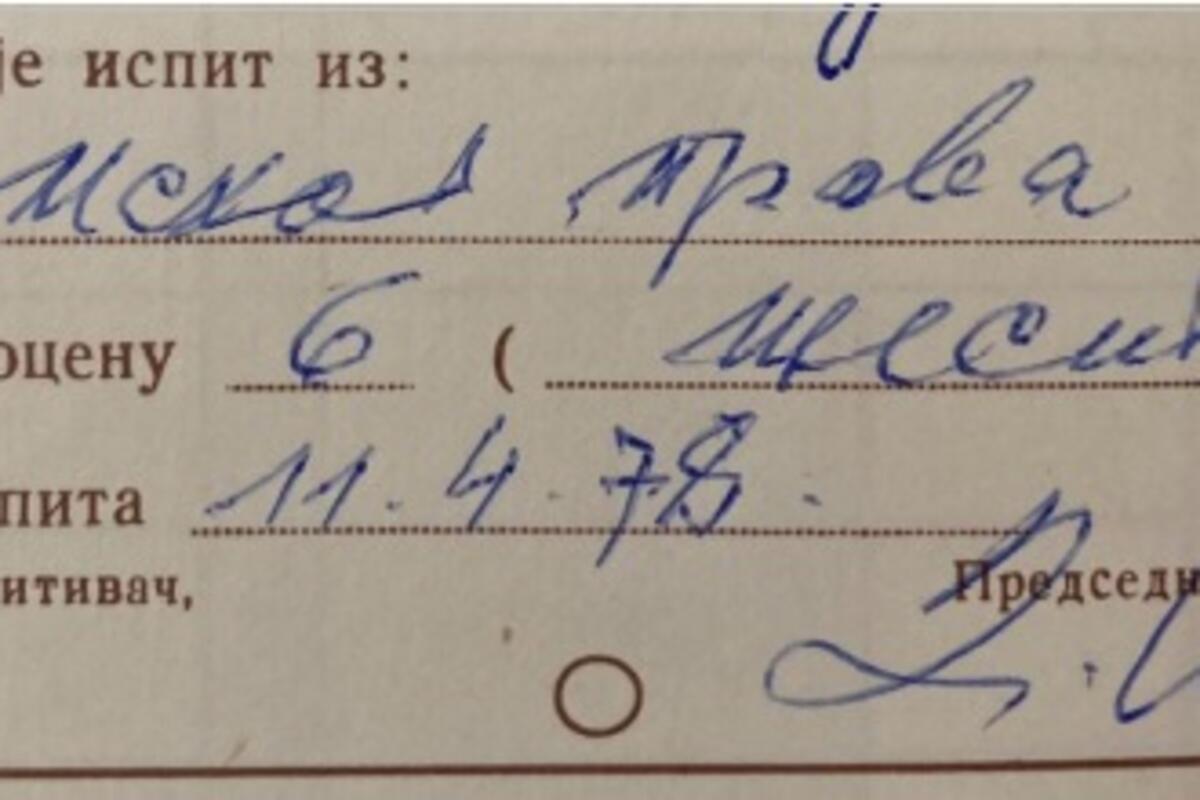 је испит из:
мског права
оцену 6 ( шест
пита 11. 4. 78.
итивач, Председн